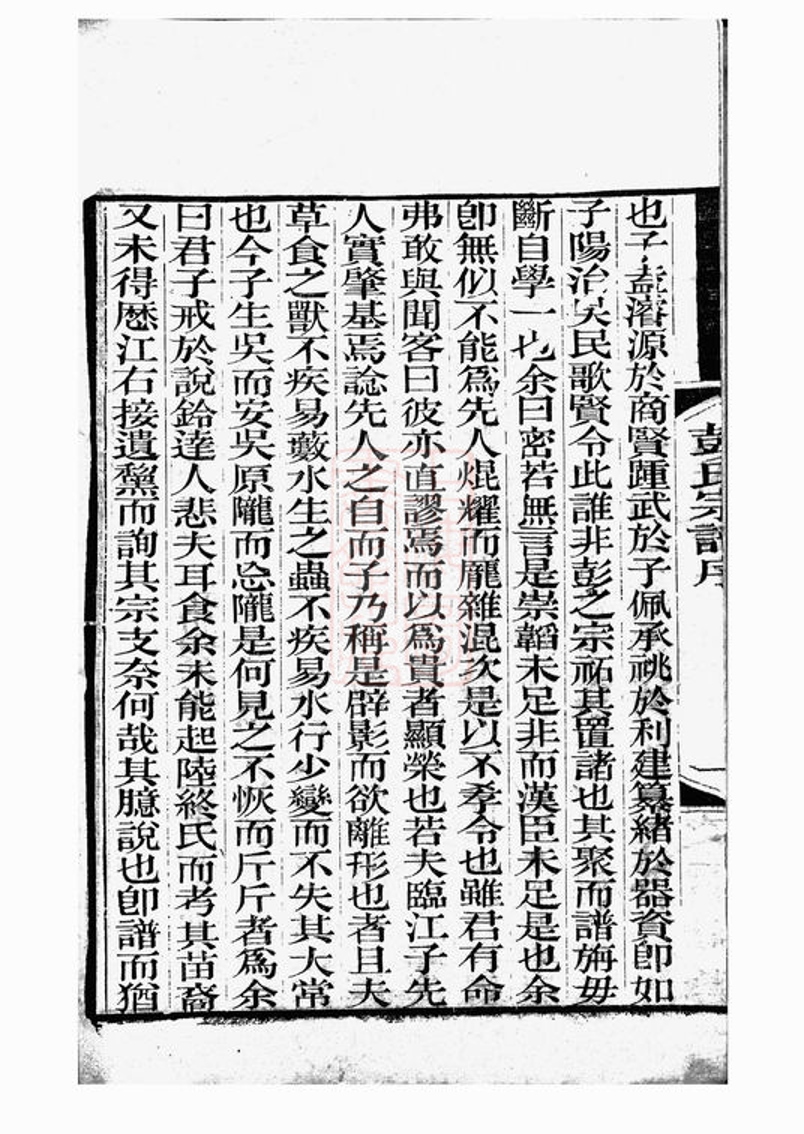 彭氏宗譜序
也子盍濬源於商賢踵武於子佩承祧於利建纂緒於器資卽如
子陽治吳民歌賢令此誰非彭之宗祏其置諸也其聚而譜旃毋
斷自學一也余曰密若無言是崇韜未足非而漢臣未足是也余
卽無似不能爲先人焜耀而厖雜混次是以不孝令也雖君有命
弗敢與聞客曰彼亦直謬焉而以爲貴者顯榮也若夫臨江子先
人實肇基焉諗先人之自而子乃稱是辟影而欲離形也者且夫
草食之獸不疾易藪水生之蟲不疾易水行少變而不失其大常
也今子生吳而安吳原隴而忩隴是何見之不恢而斤斤者爲余
曰君子戒於說鈴達人悲夫耳食余未能起陸終氏而考其苗裔
又未得歷江右接遺黧而詢其宗支奈何哉其臆說也卽譜而猶